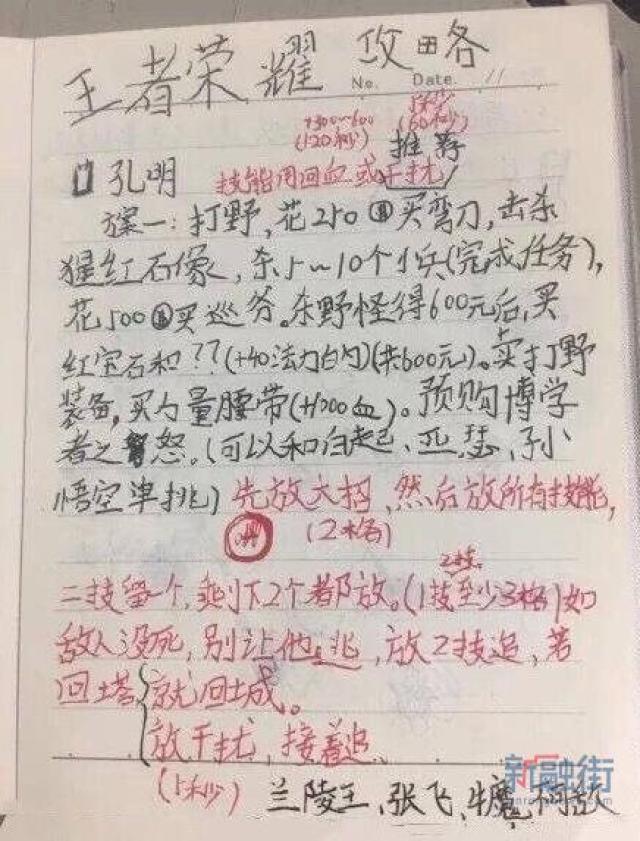 王者荣耀 攻略
No. Date. 11
+300~600
(120秒) (60秒)
推荐
孔明 技能用回血或干扰
方案一:打野,花250买弯刀,击杀
猩红石像,杀5~10个小兵(完成任务),
花500买巡爷。杀野怪得600元后,买
红宝石和??(+40法力白勺)(共600元)。卖打野
装备,买力量腰带(+1000血)。预购博学
者之怒。(可以和白起、亚瑟、孙
悟空单挑)先放大招,然后放所有技能,
(2格)
二技留一个,剩下2个都放。(1技至少3格)如
敌人没死,别让他逃,放2技追,若
回塔 就回城。
放干扰,接着追
(5秒) 兰陵王、张飞、牛魔
新融街